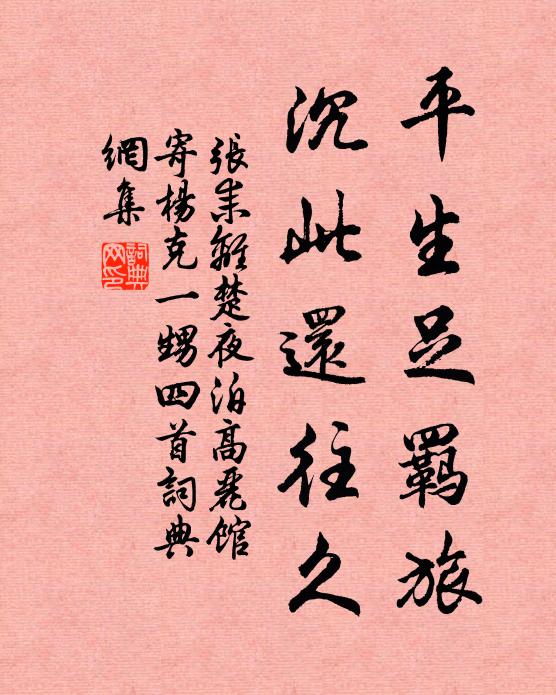 平生足羈旅
沉此還往久
張耒離楚夜泊高麗館
寄楊克一甥四首詞典
網集
詞典網印